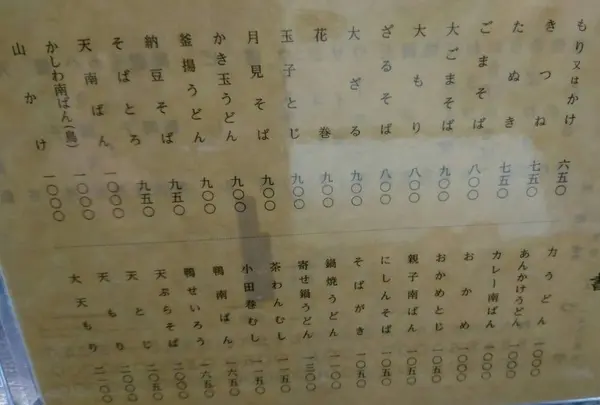 もり又はかけ 六五〇
きつね 七五〇
たぬき 七五〇
ごまそば 八〇〇
大ごまそば 九〇〇
大もり 八〇〇
ざるそば 八〇〇
大ざる 九〇〇
花巻 九〇〇
玉子とじ 九〇〇
月見そば 九〇〇
かき玉うどん 九〇〇
釜揚うどん 九〇〇
納豆そば 九五〇
そばとろ 九五〇
天南ばん 一〇〇〇
かしわ南ばん(鳥) 一〇〇〇
山かけ 一〇〇〇
力うどん 一〇〇〇
あんかけうどん 一〇〇〇
カレー南ばん 一〇〇〇
おかめ 一〇〇〇
おかめとじ 一〇五〇
親子南ばん 一〇五〇
にしんそば 一〇五〇
そばがき 一〇五〇
鍋焼うどん 一一〇〇
寄せ鍋うどん 一三〇〇
茶わんむし 一一五〇
小田巻むし 一一五〇
鴨南ばん 一六五〇
鴨せいろう 一六五〇
天ぷらそば 二〇〇〇
天とじ 二〇五〇
天もり 二〇〇〇
大天もり 二一〇〇